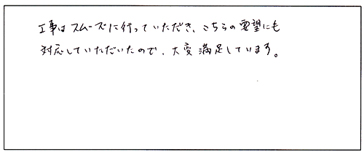 工事はスムーズに行っていただき、こちらの要望にも
対応していただいたので、大変満足しています。